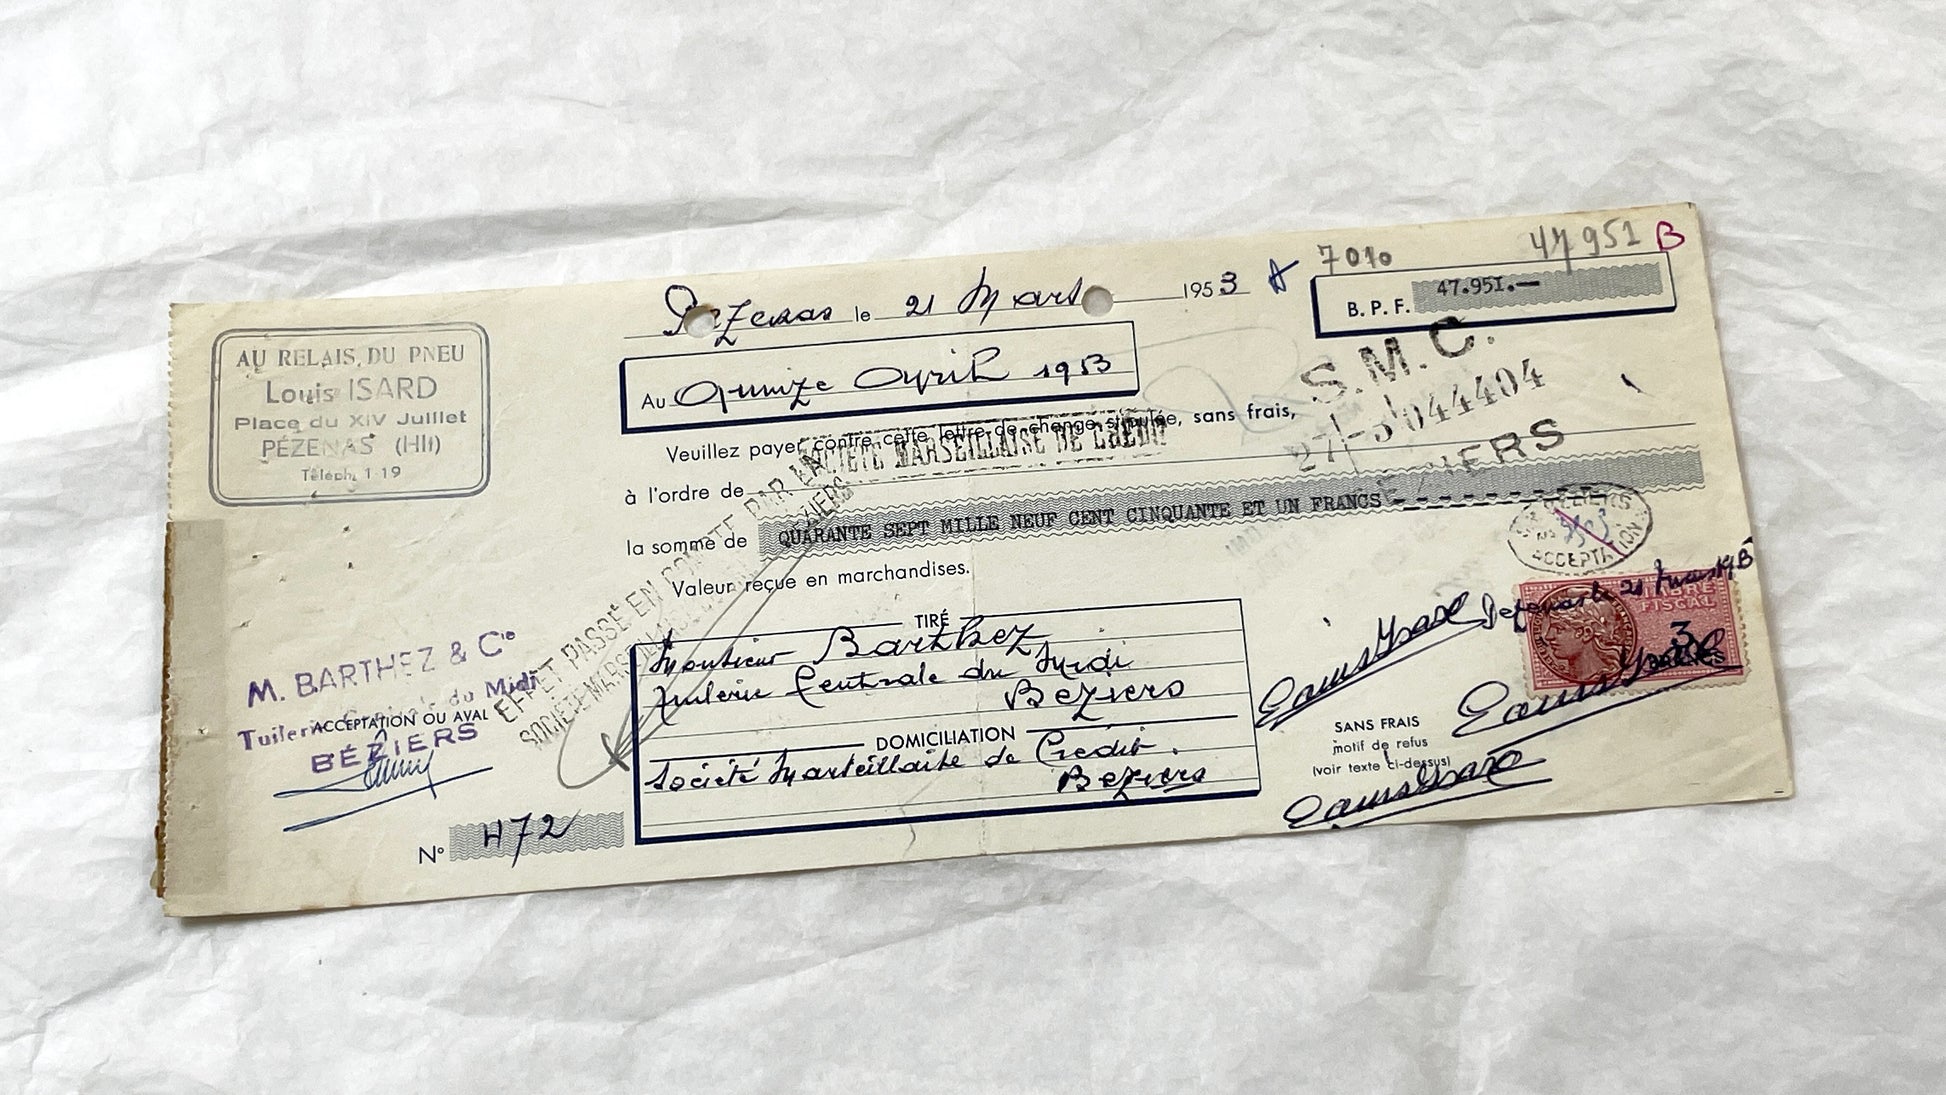 AU RELAIS DU PNEU
Louis ISARD
Place du XIV Juillet
PÉZENAS (Hlt)
Téléph. 1-19
Pézenas le 21 Mars 1953
7010
47 951 B
B. P. F. 47.951.—
Au Quinze Avril 1953
S.M.C.
27-3 044404
BÉZIERS
Veuillez payer contre cette lettre de change stipulée, sans frais,
à l'ordre de SOCIÉTÉ MARSEILLAISE DE CRÉDIT
BÉZIERS
la somme de QUARANTE SEPT MILLE NEUF CENT CINQUANTE ET UN FRANCS
Valeur reçue en marchandises.
EFFET PASSÉ EN COMPTE PAR LA
SOCIÉTÉ MARSEILLAISE
BÉZIERS
ACCEPTATION
TIRÉ
Monsieur Barthez
Tuilerie Centrale du Midi
Beziers
DOMICILIATION
Société Marseillaise de Crédit.
Beziers
M. BARTHEZ & Cie
Tuilerie Centrale du Midi
ACCEPTATION OU AVAL
BÉZIERS
N° 472
Pezenas le 21 Mars 1953
TIMBRE
FISCAL
3
Louis Isard
Louis Isard
SANS FRAIS
motif de refus
(voir texte ci-dessus)
Louis Isard